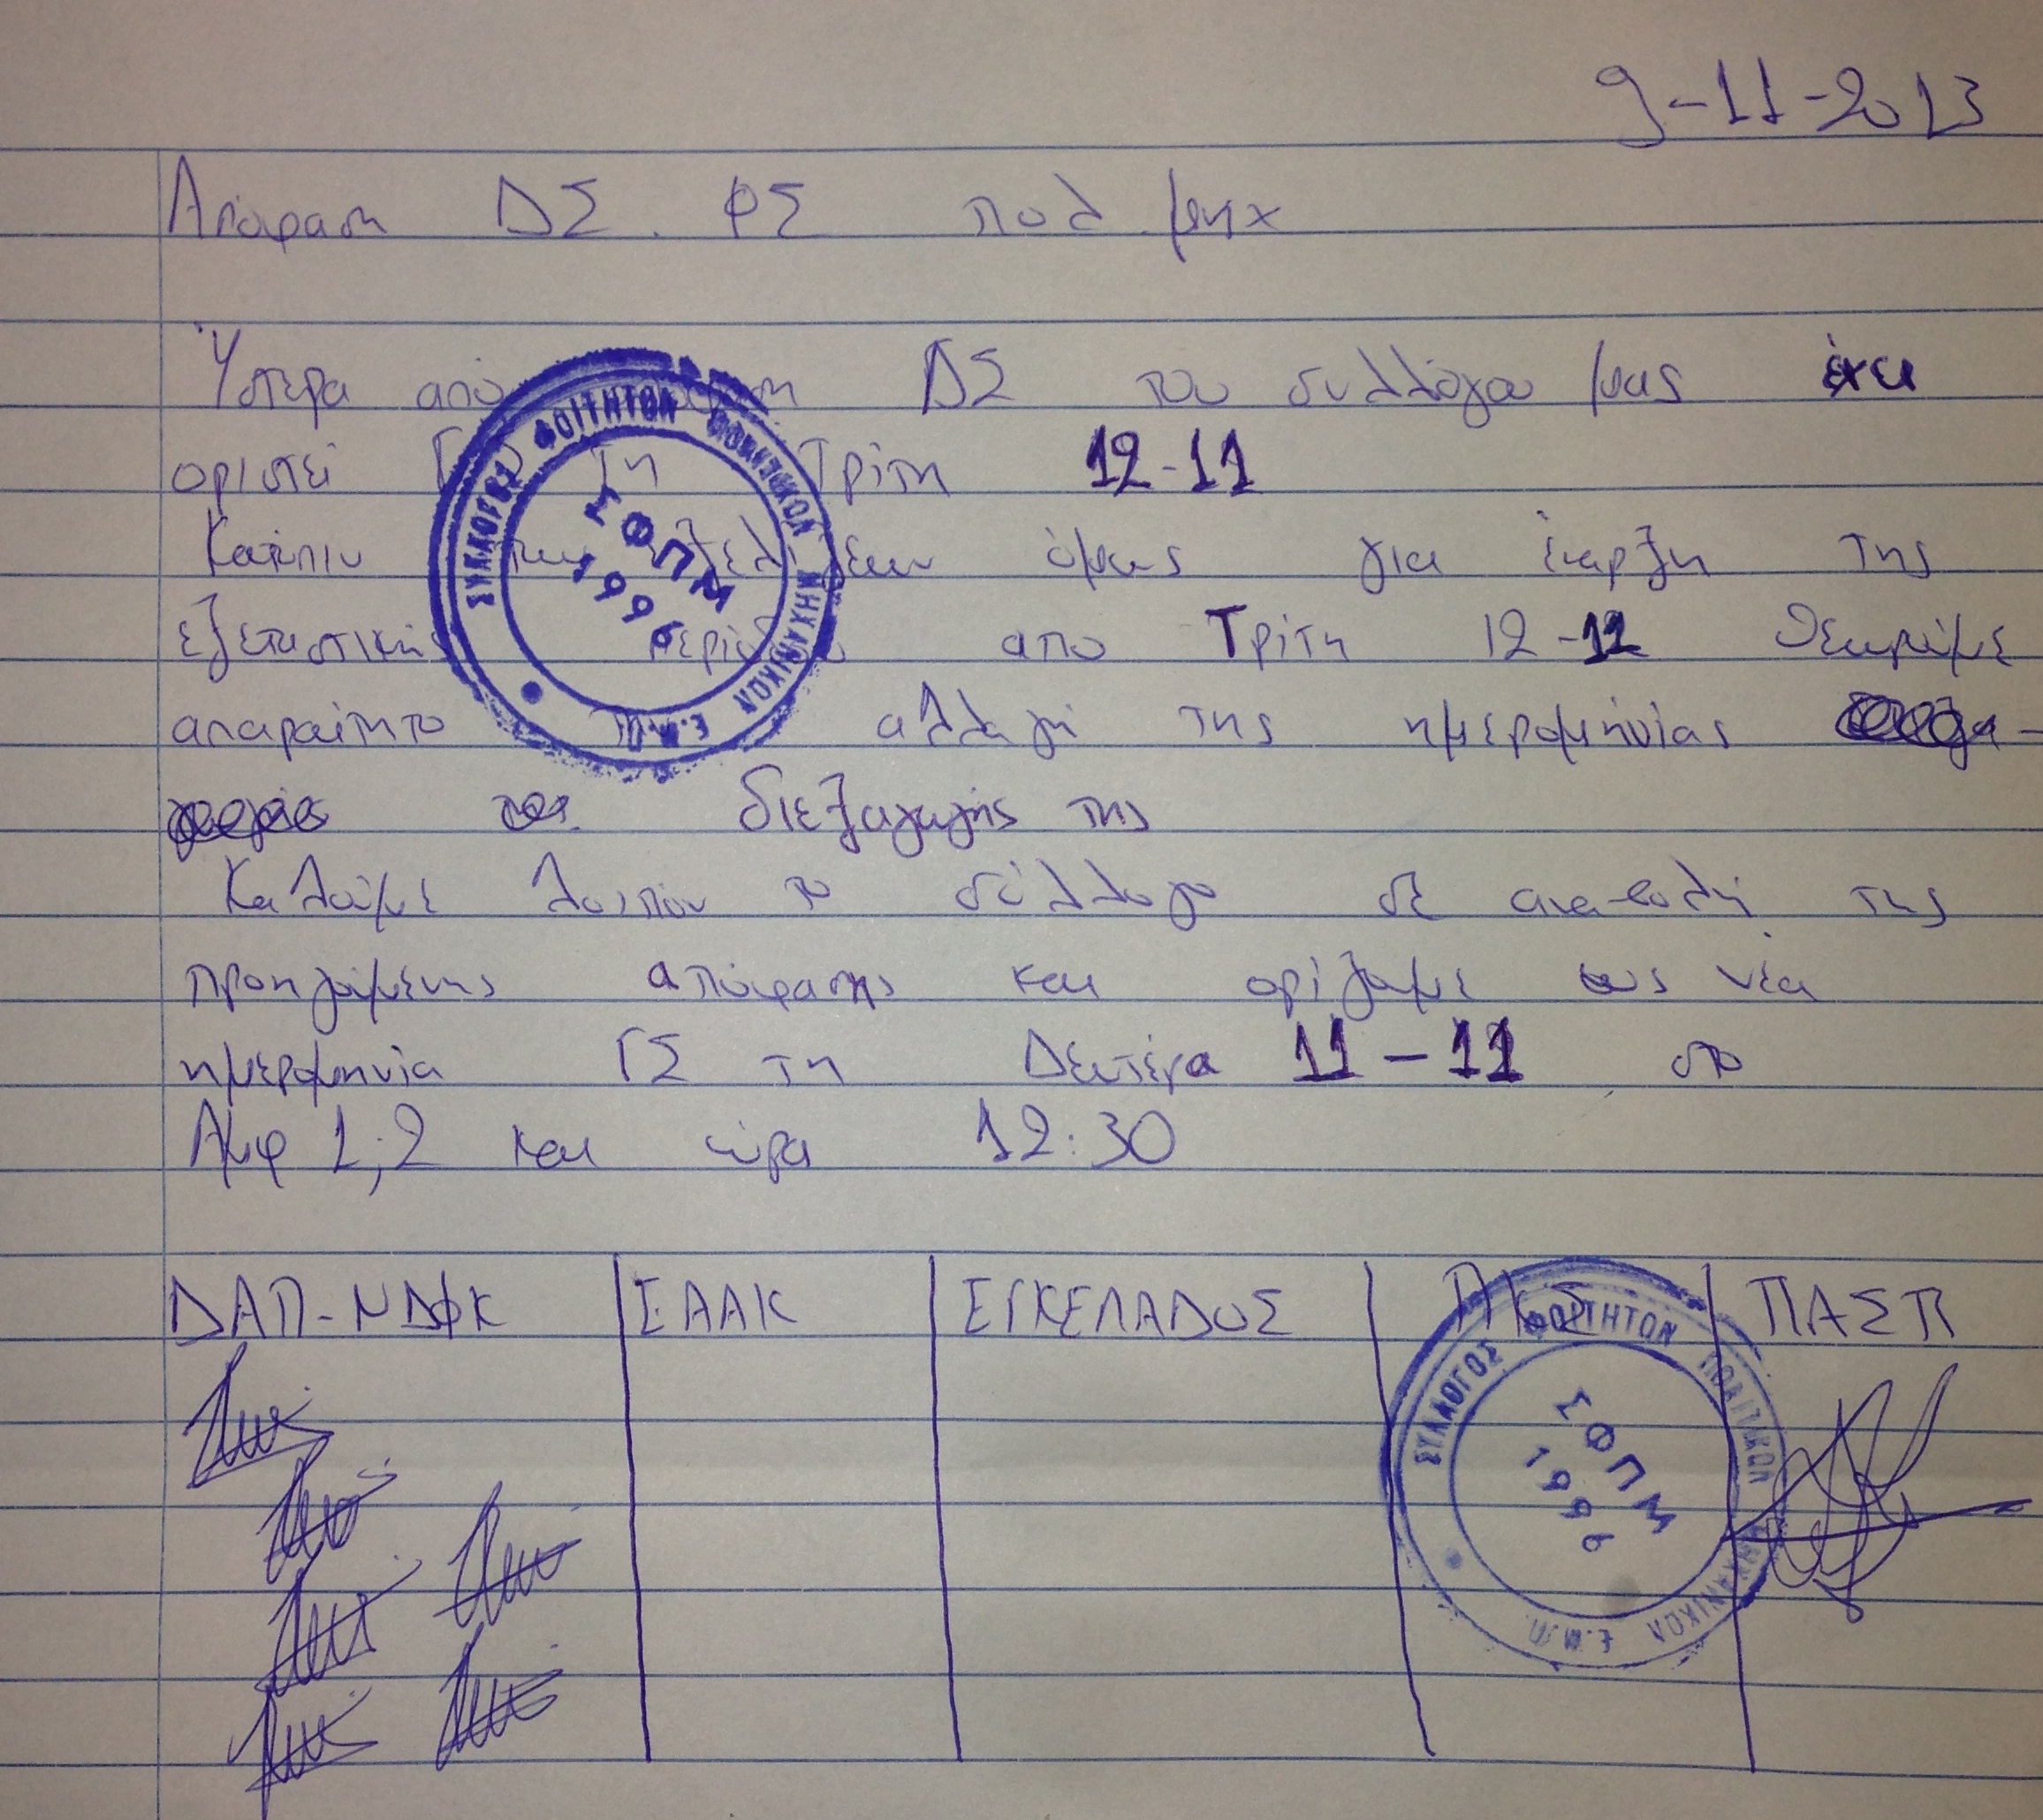 9-11-2013
Απόφαση ΔΣ. ΦΣ πολ. μηχ
Ύστερα από ΔΣ του συλλόγου μας έχει
οριστεί ΓΣ τη Τρίτη 12-11
Κατόπιν των εξελίξεων όμως για έναρξη της
εξεταστικής περιόδου απο Τρίτη 12-11 θεωρούμε
απαραίτητο τη αλλαγή της ημερομηνίας
διεξαγωγής της
Καλούμε λοιπόν το σύλλογο σε αναβολή της
προηγούμενης απόφασης και ορίζουμε ως νέα
ημερομηνία ΓΣ τη Δευτέρα 11-11 στο
Αμφ 1,2 και ώρα 12:30
ΔΑΠ-ΝΔΦΚ ΕΑΑΚ ΕΓΚΕΛΑΔΟΣ ΠΚΣ ΠΑΣΠ
ΣΥΛΛΟΓΟΣ ΦΟΙΤΗΤΩΝ ΠΟΛΙΤΙΚΩΝ ΜΗΧΑΝΙΚΩΝ Ε.Μ.Π.
ΣΦΠΜ
1996
ΣΥΛΛΟΓΟΣ ΦΟΙΤΗΤΩΝ ΠΟΛΙΤΙΚΩΝ ΜΗΧΑΝΙΚΩΝ Ε.Μ.Π.
ΣΦΠΜ
1996